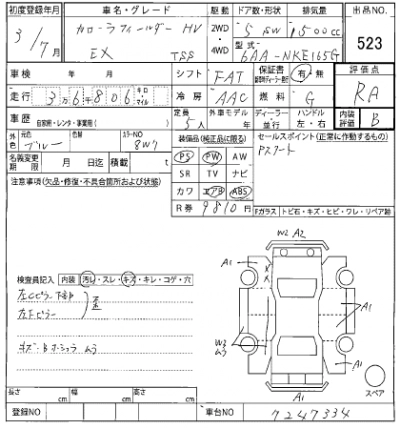 初度登録年月 車名・グレード 駆動 ドア数・形状 排気量 出品NO.
3/7月 カローラフィールダー HV 2WD 5 SW 1500cc 523
EX TSS ・4WD 型式 6AA-NKE165G
車検 年 月 シフト FAT 保証書 有・無 評価点
走行 3万6千806 キロ マイル 冷房 AAC 燃料 G RA
車歴 自家用・レンタ・事業用( ) 定員 5人 外車モデル 年 ディーラー 並行 ハンドル 左・右 内装評価 B
外色 元色 ブルー 色 カラーNO 8W7 装備品(純正品に限る) セールスポイント(正常に作動するもの)
名義変更期限 月 日迄 積載 t PS PW AW Pスタート
注意事項(欠品・修復・不具合箇所および状態) SR TV ナビ
カワ エアB ABS
R券 9810円
Fガラス トビ石・キズ・ヒビ・ワレ・リペア跡
W2 A2
A1 A1
検査員記入 内装 汚れ・スレ・キズ・キレ・コゲ・穴
左Cピラー下部
左Fピラー
A1
W3
ムラ
A1
A1
スペア
長さ cm 幅 cm 高さ cm
登録NO 車台NO 7247334